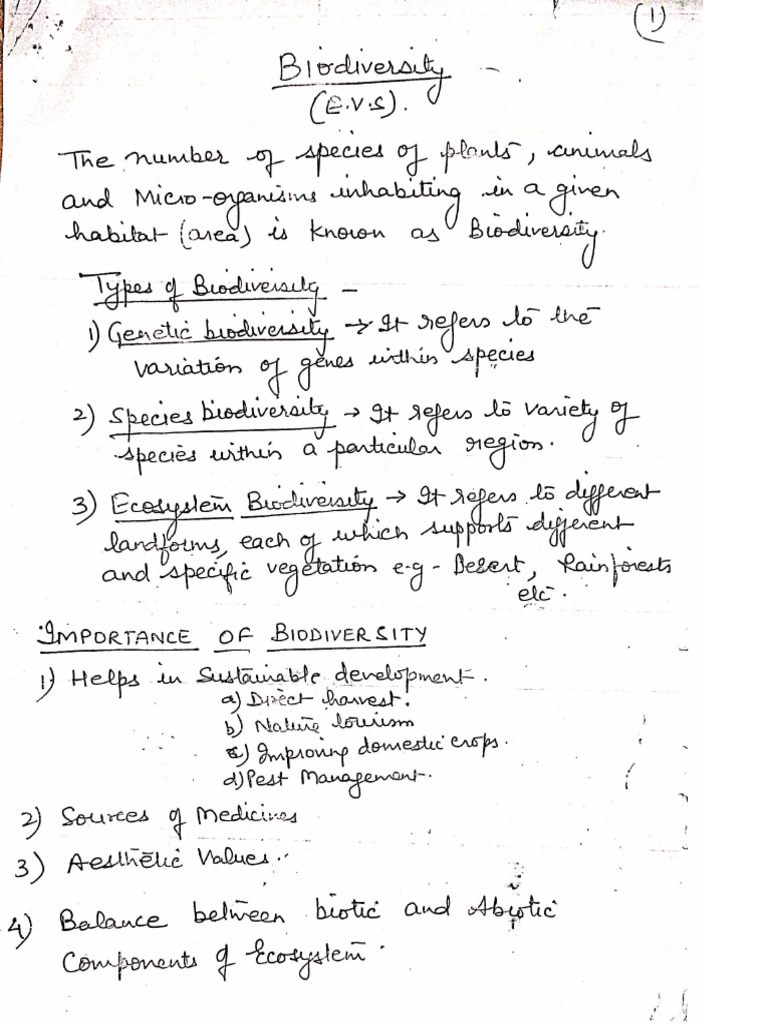 (1)
Biodiversity -
(E.V.S).
The number of species of plants, animals
and Micro-organisms inhabiting in a given
habitat (area) is known as Biodiversity.
Types of Biodiversity -
1) Genetic biodiversity → It refers to the
variation of genes within species
2) Species biodiversity → It refers to variety of
species within a particular region.
3) Ecosystem Biodiversity → It refers to different
landforms, each of which supports different
and specific vegetation e-g - Desert, Rainforests
etc.
IMPORTANCE OF BIODIVERSITY
1) Helps in Sustainable development.
a) Direct harvest.
b) Nature tourism
c) Improving domestic crops.
d) Pest Management.
2) Sources of Medicines
3) Aesthetic Values.
4) Balance between biotic and Abiotic
Components of Ecosystem.